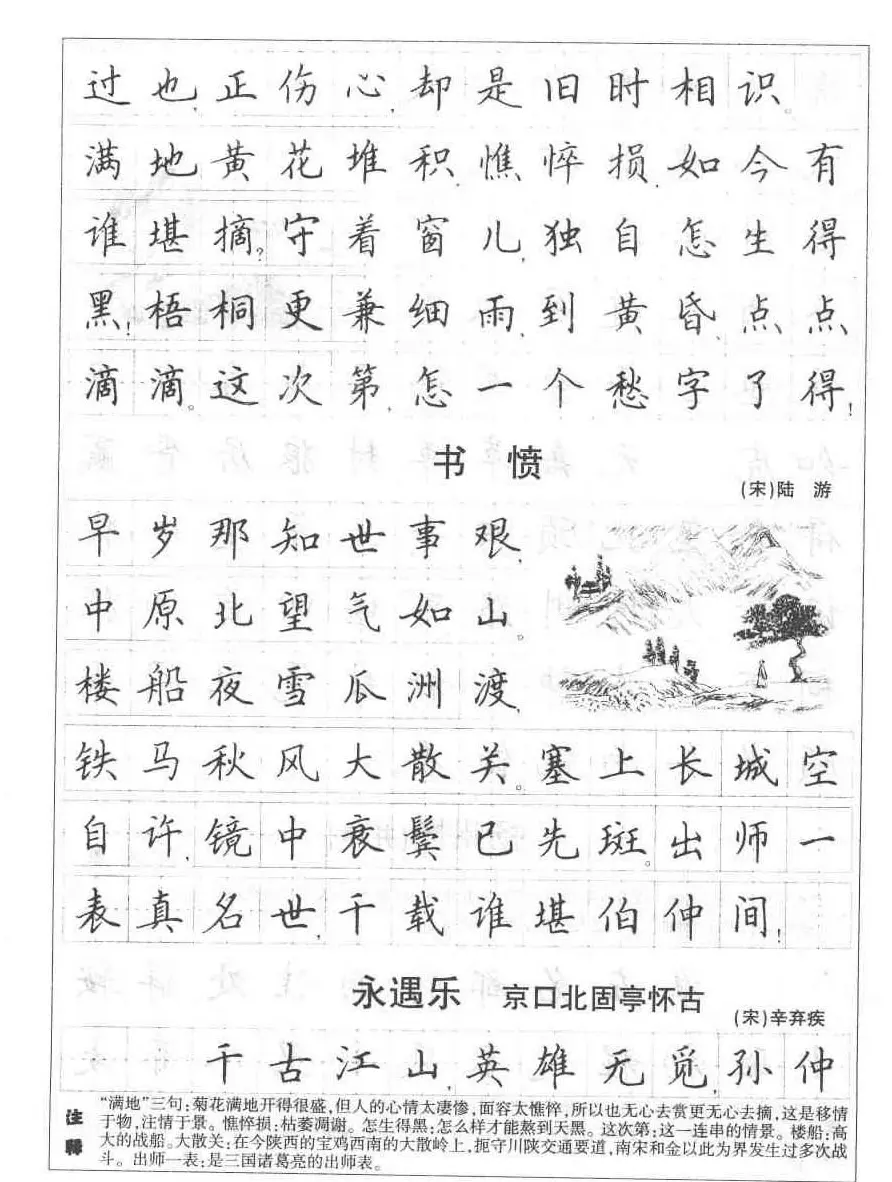 过也,正伤心,却是旧时相识。
满地黄花堆积,憔悴损,如今有
谁堪摘?守着窗儿,独自怎生得
黑!梧桐更兼细雨,到黄昏,点点
滴滴。这次第,怎一个愁字了得!
书 愤
(宋)陆 游
早岁那知世事艰,
中原北望气如山。
楼船夜雪瓜洲渡,
铁马秋风大散关。塞上长城空
自许,镜中衰鬓已先斑。出师一
表真名世,千载谁堪伯仲间!
永遇乐 京口北固亭怀古
(宋)辛弃疾
千古江山,英雄无觅,孙仲
注释
“满地”三句:菊花满地开得很盛,但人的心情太凄惨,面容太憔悴,所以也无心去赏更无心去摘,这是移情
于物,注情于景。憔悴损:枯萎凋谢。怎生得黑:怎么样才能熬到天黑。这次第:这一连串的情景。楼船:高
大的战船。大散关:在今陕西的宝鸡西南的大散岭上,扼守川陕交通要道,南宋和金以此为界发生过多次战
斗。出师一表:是三国诸葛亮的出师表。